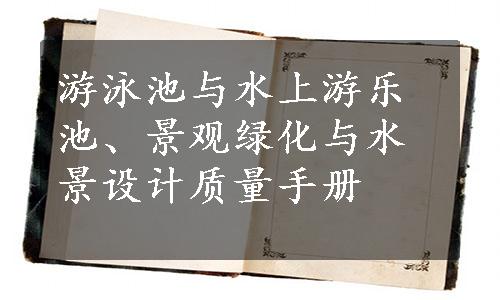 游泳池与水上游乐
池、景观绿化与水
景设计质量手册